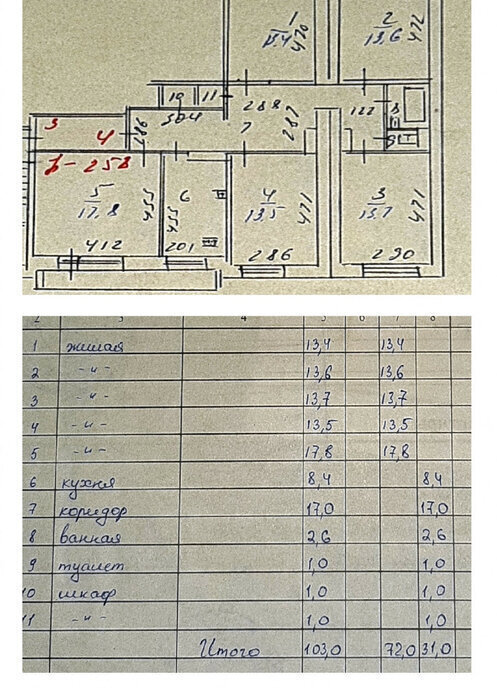 1 2
13,4 470 13,6 472
10 11 288 122 8
304 7 287 9
3 4 286
h-258
5 6 4 3
17,8 455 455 13,5 471 13,7 471
412 201 286 290
2 3 4 5 6 7 8
1 жилая 13,4 13,4
2 -"- 13,6 13,6
3 -"- 13,7 13,7
4 -"- 13,5 13,5
5 -"- 17,8 17,8
6 кухня 8,4 8,4
7 коридор 17,0 17,0
8 ванная 2,6 2,6
9 туалет 1,0 1,0
10 шкаф 1,0 1,0
11 -"- 1,0 1,0
Итого 103,0 72,0 31,0